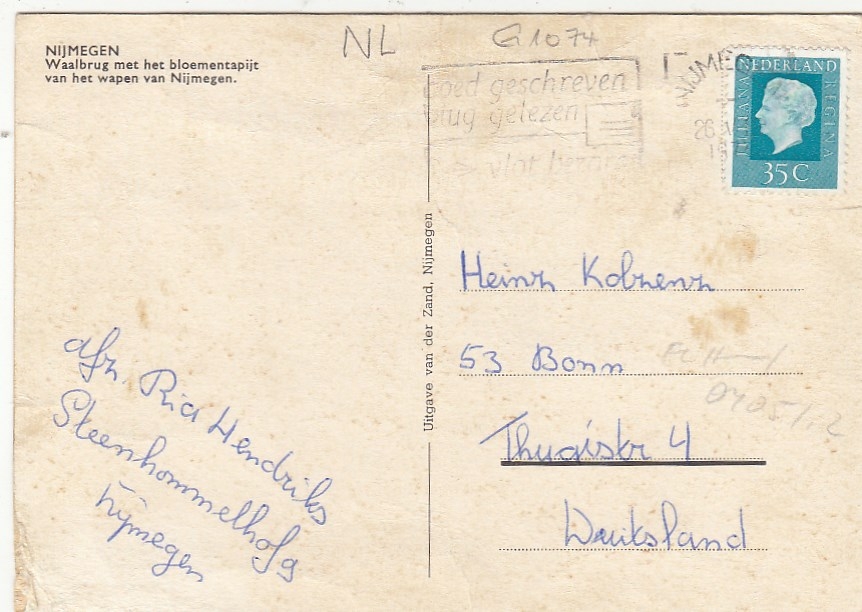 NIJMEGEN
Waalbrug met het bloementapijt
van het wapen van Nijmegen.
NL
G1074
goed geschreven
vlug gelezen
vlot
NIJMEG
26
NEDERLAND
JULIANA REGINA
35 C
Uitgave van der Zand, Nijmegen
Heinz Kobzenz
53 Bonn
4
Duitsland
afz. Ria Hendriks
Steenhommelhof 9
Nijmegen